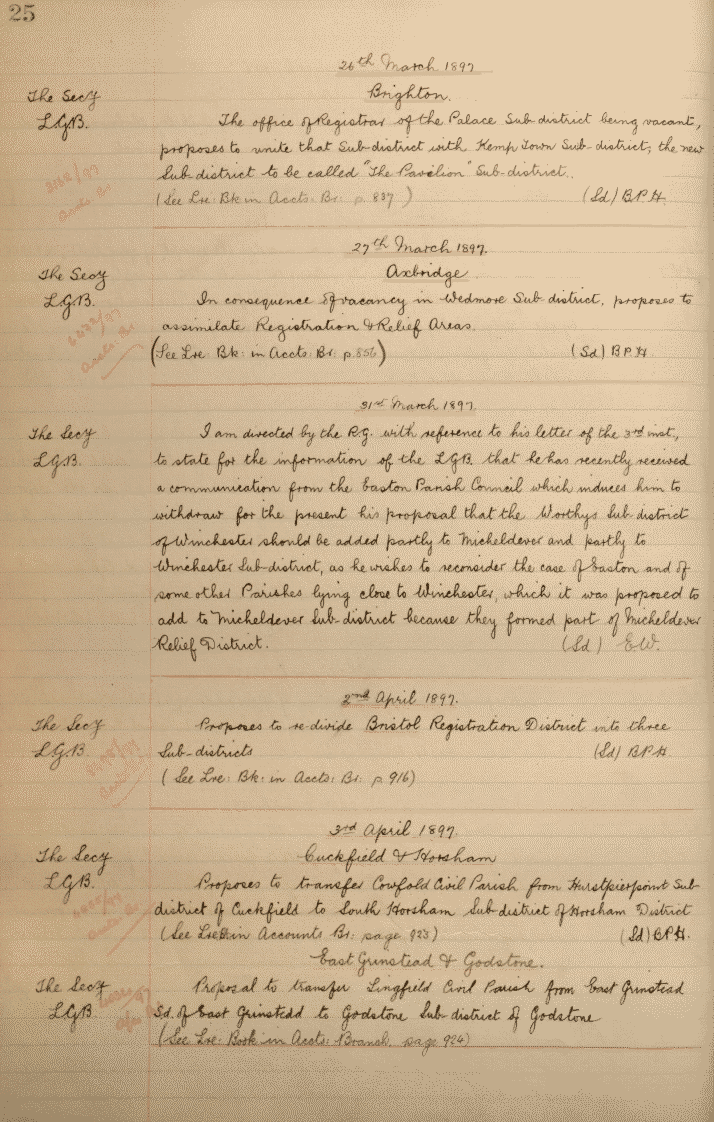 25
26th March 1897
The Secy
Brighton.
L.G.B.
The office of Registrar of the Palace Sub-district being vacant,
proposes to unite that Sub-district with Kemp Town Sub-district; the new
Sub-district to be called "The Pavilion" Sub-district.
(See Lre: Bk in Accts: Br: p. 837)
(Sd) B.P.H.
27th March 1897.
The Secy
Axbridge
L.G.B.
In consequence of vacancy in Wedmore Sub-district, proposes to
assimilate Registration & Relief Areas.
(See Lre: Bk: in Accts: Br: p. 856)
(Sd) B P H
31st March 1897.
The Secy
L.G.B.
I am directed by the R.G. with reference to his letter of the 3rd inst,
to state for the information of the L.G.B. that he has recently received
a communication from the Easton Parish Council which induces him to
withdraw for the present his proposal that the Worthys Sub-district
of Winchester should be added partly to Micheldever and partly to
Winchester Sub-district, as he wishes to reconsider the case of Easton and of
some other Parishes lying close to Winchester, which it was proposed to
add to Micheldever Sub-district because they formed part of Micheldever
Relief District.
(Sd) E.W.
2nd April 1897.
The Secy
L.G.B
Proposes to re-divide Bristol Registration District into three
Sub-districts
(Sd) B P H
(See Lre: Bk: in Accts: Br: p. 916)
3rd April 1897.
The Secy
Cuckfield & Horsham
L.G.B.
Proposes to transfer Cowfold Civil Parish from Hurstpierpoint Sub-
district of Cuckfield to South Horsham Sub-district of Horsham District
(See Lre in Accounts Br: page 923)
(Sd) B.P.H.
East Grinstead & Godstone.
The Secy
L.G.B.
Proposal to transfer Lingfield Civil Parish from East Grinstead
Sd. of East Grinstead to Godstone Sub-district of Godstone
(See Lre: Book in Accts: Branch, page 924)